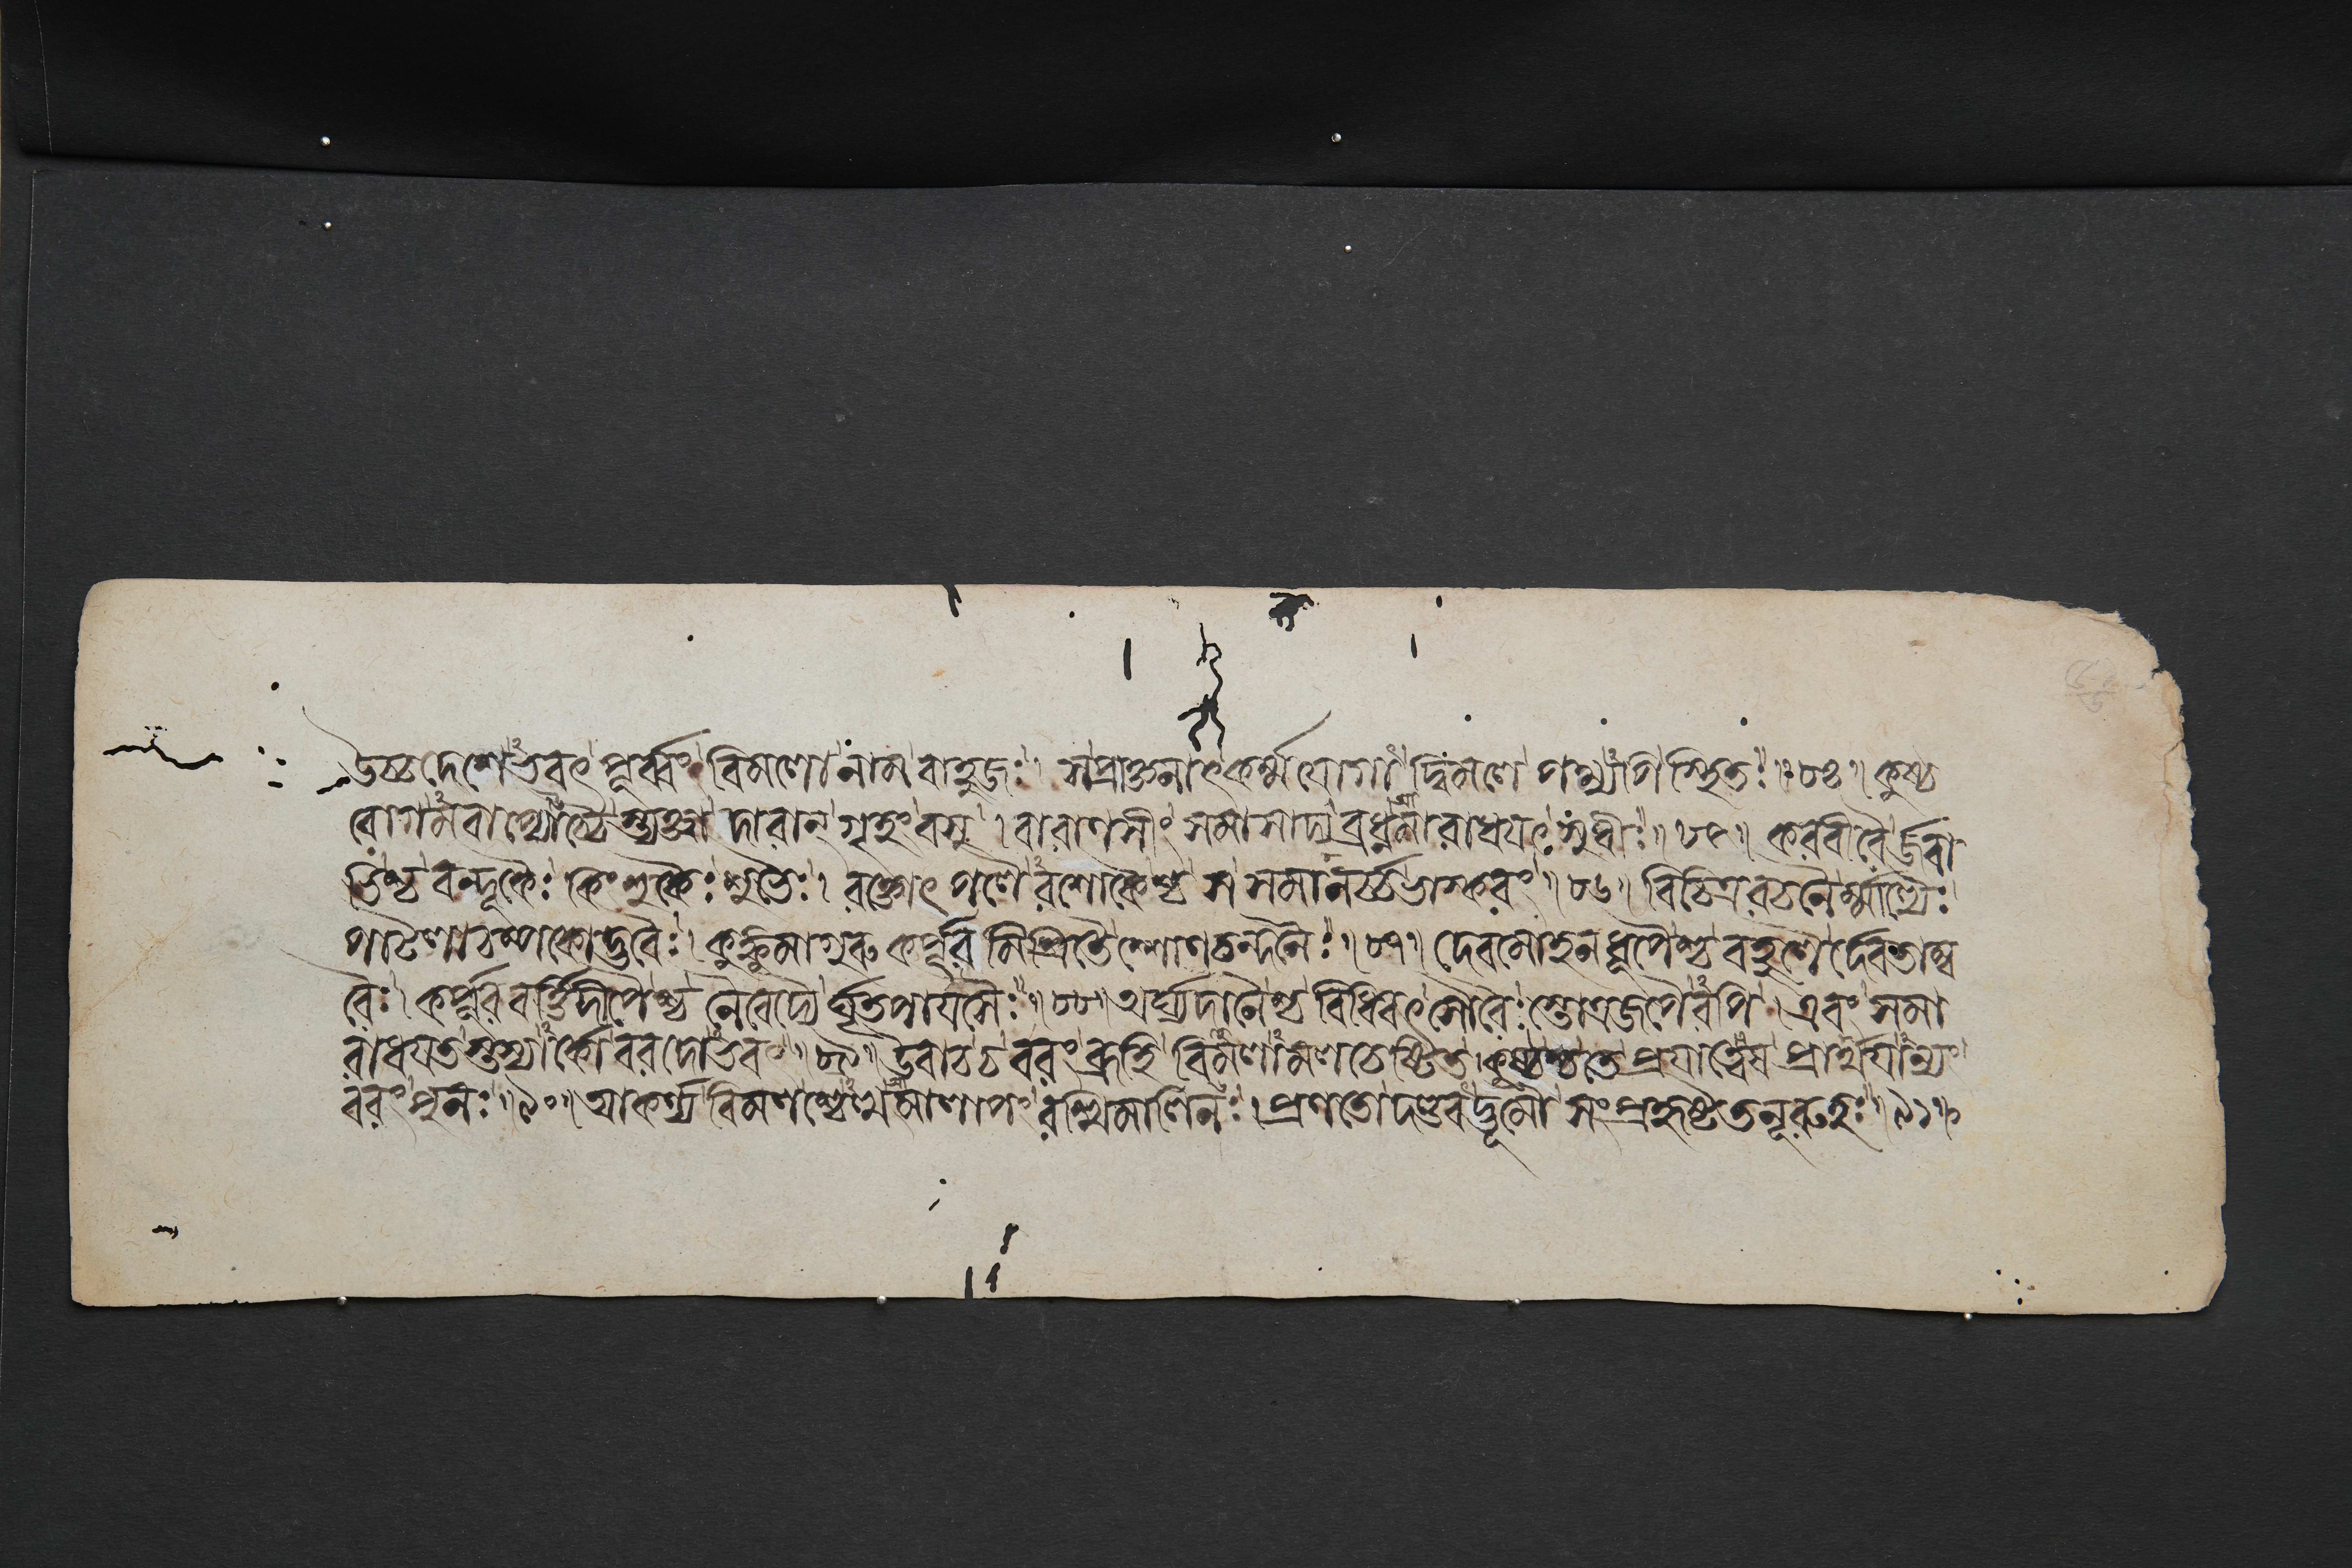 উচ্চদেশেঽভবৎপূর্ব্বং বিমলোনামবাহুজঃ। সপ্রাক্তনাৎকর্ম্মযোগাদ্বিমলে পথ্যপিস্থিতঃ॥৮৪॥ কুষ্ঠ
রোগমবাপ্যোচ্চৈস্ত্যক্ত্বা দারান্ গৃহংবসু। বারাণসীং সমাসাদ্যব্রধ্নমারাধয়ৎসুধীঃ॥৮৫॥ করবীরৈর্জবা
ভিশ্চ বন্ধূকৈঃ কিংশুকৈঃ শুভৈঃ। রক্তোৎপলৈরশোকৈশ্চ স সমানর্চ্চভাস্করং॥৮৬॥ বিচিত্ররচনৈর্ম্মাল্যৈঃ
পাটলাচম্পকোদ্ভবৈঃ। কুঙ্কুমাগুরুকর্পূরমিশ্রিতৈশ্শোণচন্দনৈঃ॥৮৭॥ দেবমোহনধূপৈশ্চ বহুশো র্দেবতাম্ব
রৈঃ। কর্পূরবর্ত্তিদীপৈশ্চ নৈবেদ্যৈর্ঘৃতপায়সৈঃ॥৮৮॥ অর্ঘ্যদানৈশ্চ বিধিবৎসৌরৈঃ স্তোত্রজপৈরপি। এবং সমা
রাধয়তস্তস্যার্কো বরদোঽভবৎ॥৮৯॥ উবাচচ বরং ব্রূহি বিমলামলচেষ্টিত। কুষ্ঠশ্চতে প্রয়াত্বেষ প্রার্থয়ান্যং
বরং পুনঃ॥৯০॥ আকর্ণ্য বিমলশ্চেত্থমালাপং রশ্মিমালিনঃ। প্রণতো দণ্ডবদ্ভূমৌ সংপ্রহৃষ্টতনূরুহঃ॥৯১॥